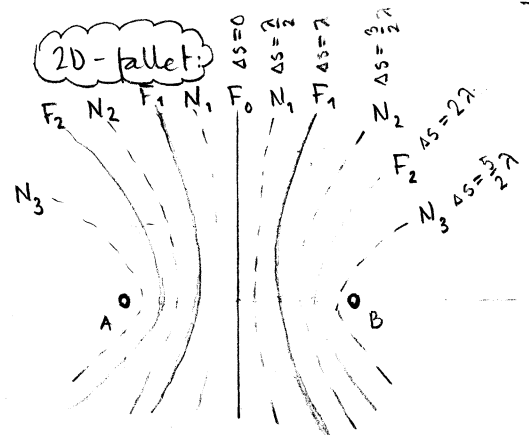 2D-fallet:
ΔS=0 ΔS=λ/2 ΔS=λ ΔS=3/2 λ
F₂ N₂ F₁ N₁ F₀ N₁ F₁ N₂
F₂ ΔS=2λ
N₃ N₃ ΔS=5/2 λ
A B